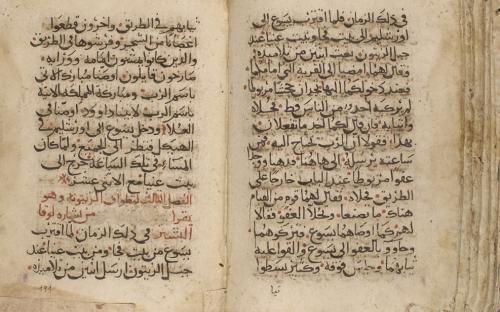 في ذلك الزمان فلما اقترب يسوع الى
اورشليم الى بيت فجا وبيت عنيا عند
جبل الزيتون بعث اثنين من تلاميذه
وقال لهما امضيا الى القرية التي امامكما
فعند دخولكما اليها تجدان جحشا مربوطا
لم يركبه احد من الناس قط فحلاه
واتيا به فان قال لكما احد ما تفعلان
بهذا فقولا ان الرب يحتاج اليه فمن
ساعته يرسله الى هاهنا فذهبا ووجدا
عفوا مربوطا عند الباب خارجا على
الطريق فحلاه فقال لهما قوم من القيام
هناك ما تصنعا وتحلا العفو فقالا
لهم كما اوصاهما يسوع فتركوهما
وجاوو بالعفو الى يسوع والقوا عليه
ثيابهما وجلس فوقه وكثير بسطوا
ثيا
ثيابهم في الطريق واخرون قطعوا
اغصانا من الشجر وفرشوها في الطريق
والذين كانوا يمشون امامه وورايه
صارخون قايلون اوصنا مبارك الاتي
باسم الرب ومباركة المملكة الاتية
باسم الرب لابينا داوود اوصنا في
العلا ودخل يسوع الى اورشليم في
الهيكل فنظر الى الجميع ولما كان
المسا في تلك الساعة خرج الى
بيت عنيا مع الاثني عشر
الفصل الثالث لطواف الزيتونة وهو
يقرا من بشارة لوقا
في ذلك الزمان لما اقترب
يسوع من بيت فجا ومن بيت عنيا عند
جبل الزيتون ارسل اثنين من تلاميذه